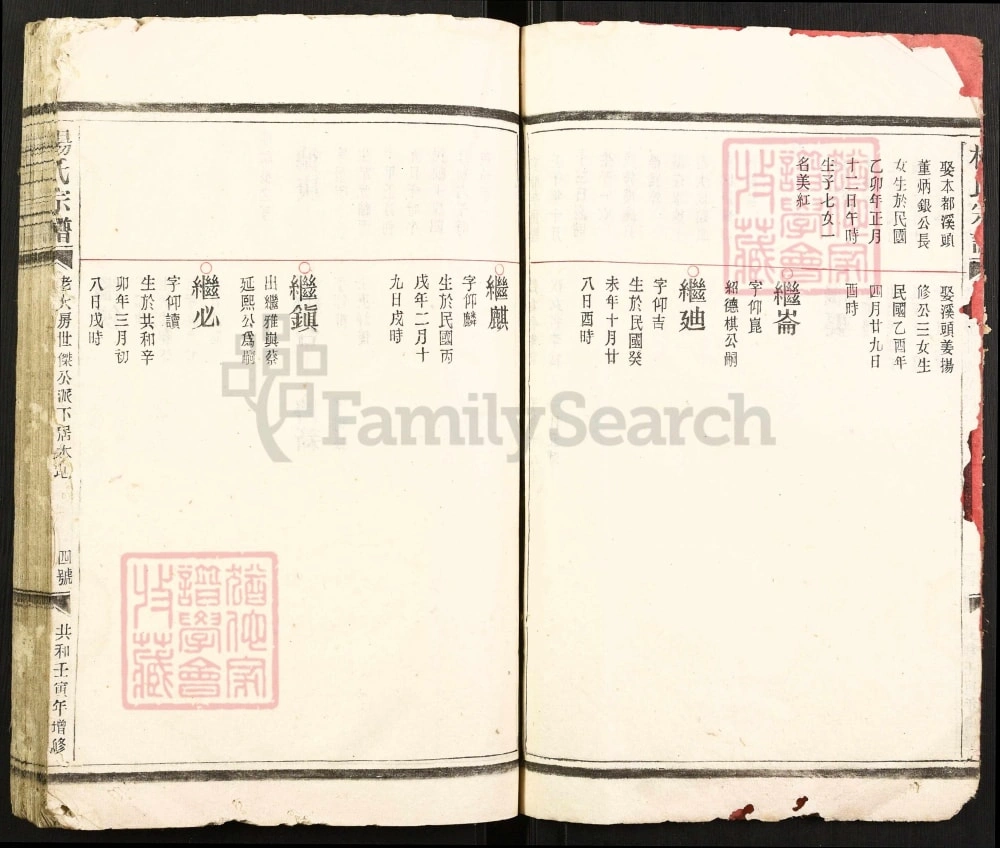 娶本都溪頭
董炳銀公長
女生於民國
乙卯年正月
十二日午時
生子七女一
名美紅
娶溪頭姜揚
修公三女生
民國乙酉年
四月廿九日
酉時
繼崙
字仰崑
紹德棋公嗣
繼廸
字仰吉
生於民國癸
未年十月廿
八日酉時
繼麒
字仰麟
生於民國丙
戌年二月十
九日戌時
繼鎭
出繼雅與蔡
延熙公爲嗣
繼必
字仰讀
生於共和辛
卯年三月初
八日戌時
楊氏宗譜
老大房世傑公派下居本地
四號
共和壬寅年增修
譜學會
收藏
譜學會
收藏
FamilySearch